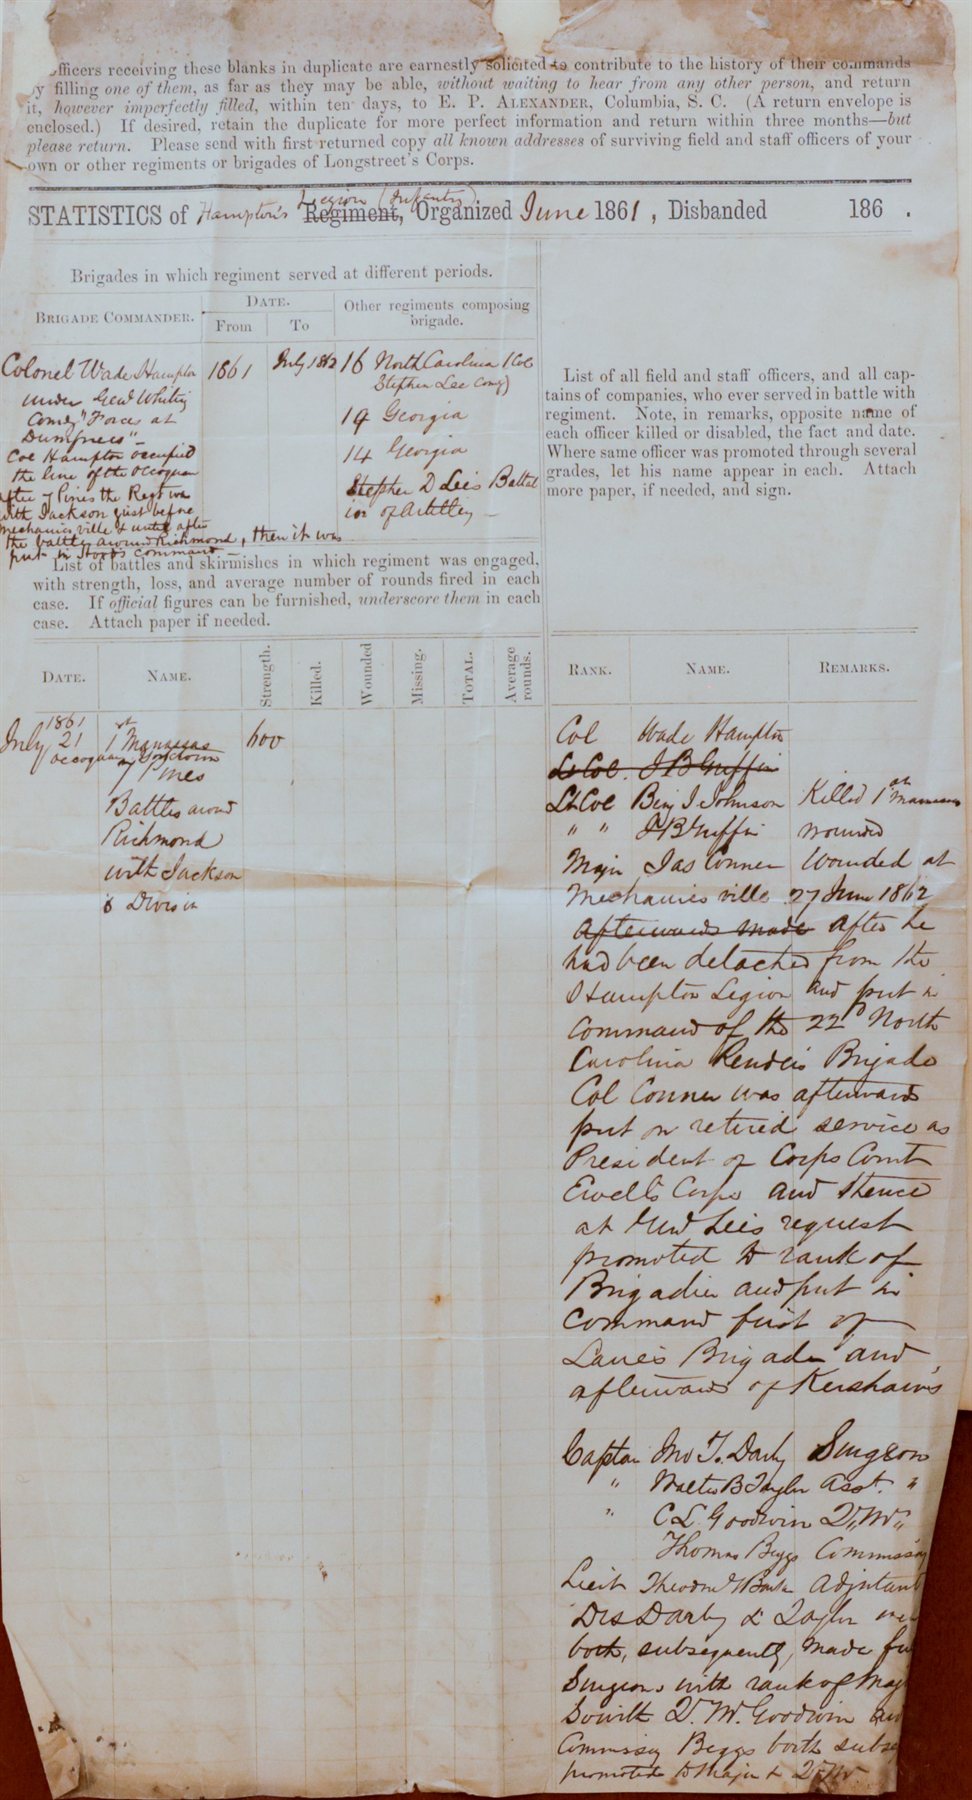 officers receiving these blanks in duplicate are earnestly solicited to contribute to the history of their commands
by filling one of them, as far as they may be able, without waiting to hear from any other person, and return
it, however imperfectly filled, within ten days, to E. P. ALEXANDER, Columbia, S. C. (A return envelope is
enclosed.) If desired, retain the duplicate for more perfect information and return within three months—but
please return. Please send with first returned copy all known addresses of surviving field and staff officers of your
own or other regiments or brigades of Longstreet's Corps.
Legion (Infantry)
STATISTICS of Hampton's Regiment, Organized June 1861, Disbanded 186 .
Brigades in which regiment served at different periods.
BRIGADE COMMANDER.
DATE.
From
To
Other regiments composing
brigade.
Colonel Wade Hampton
under Genl Whiting
Comdg "Forces at
Dumfries"—
Col Hampton occupied
the line of the Occoquan
after 7 Pines the Regt was
with Jackson just before
Mechanicsville & until after
the battles around Richmond, then it was
put in Hood's command—
1861
July 1862
16 North Carolina (Col
Stephen Lee Comg)
19 Georgia
14 Georgia
Stephen D Lees Battal
ion of Artillery—
List of all field and staff officers, and all cap-
tains of companies, who ever served in battle with
regiment. Note, in remarks, opposite name of
each officer killed or disabled, the fact and date.
Where same officer was promoted through several
grades, let his name appear in each. Attach
more paper, if needed, and sign.
List of battles and skirmishes in which regiment was engaged,
with strength, loss, and average number of rounds fired in each
case. If official figures can be furnished, underscore them in each
case. Attach paper if needed.
DATE.
NAME.
Strength.
Killed.
Wounded
Missing.
TOTAL.
Average
rounds.
1861
July 21 1st Manassas 600
Occoquan Yorktown
7 Pines
Battles around
Richmond
with Jackson
's Division
RANK.
NAME.
REMARKS.
Col Wade Hampton
Lt Col. J B Griffin
Lt Col Benj J Johnson Killed 1st Manassas
" " J B Griffin wounded
Major Jas Conner Wounded at
Mechanicsville 27 June 1862
afterwards made after he
had been detached from the
Hampton Legion and put in
command of the 22d North
Carolina Penders Brigade
Col Conner was afterwards
put on retired service as
President of Corps Court
Ewell's Corps and thence
at Genl Lee's request
promoted to rank of
Brigadier and put in
command first of
Lane's Brigade and
afterwards of Kershaw's
Captain Jno T. Darby Surgeon
" Walter B Taylor Asst. "
" C L Goodwin Q.M.
Thomas Beggs Commissary
Lieut Theodore Barker Adjutant
Drs Darby & Taylor were
both, subsequently, made full
Surgeons with rank of Maj
So with Q. M. Goodwin and
Commissary Beggs both subse
promoted to Major & Q M